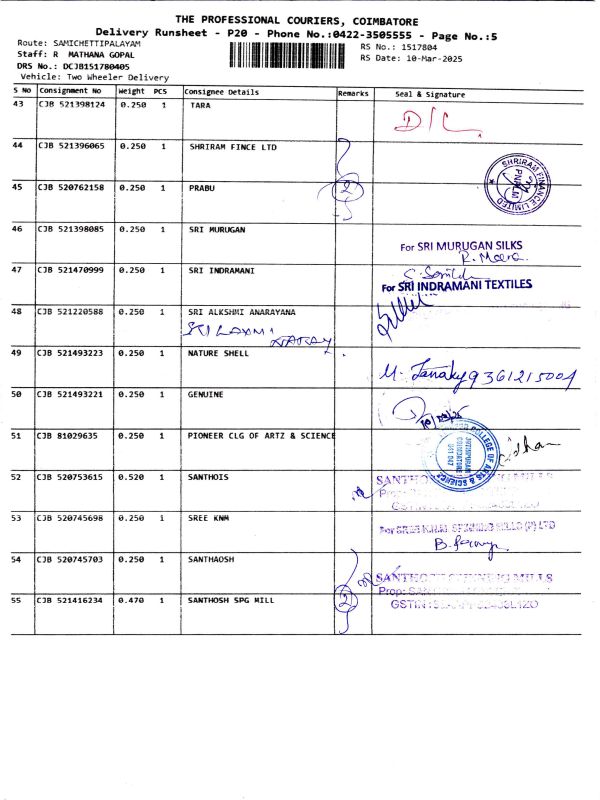 THE PROFESSIONAL COURIERS, COIMBATORE
Delivery Runsheet - P20 - Phone No.:0422-3505555 - Page No.:5
Route: SAMICHETTIPALAYAM
RS No.: 1517804
Staff: R MATHANA GOPAL
RS Date: 10-Mar-2025
DRS No.: DCJB151780405
Vehicle: Two Wheeler Delivery
S No Consignment No Weight PCS Consignee Details Remarks Seal & Signature
43 CJB 521398124 0.250 1 TARA
D/C
44 CJB 521396065 0.250 1 SHRIRAM FINCE LTD
SHRIRAM FINANCE LIMITED
45 CJB 520762158 0.250 1 PRABU 2
46 CJB 521398085 0.250 1 SRI MURUGAN
For SRI MURUGAN SILKS
R. Meera
47 CJB 521470999 0.250 1 SRI INDRAMANI
For SRI INDRAMANI TEXTILES
48 CJB 521220588 0.250 1 SRI ALKSHMI ANARAYANA
SRI LAXMI NARAY
49 CJB 521493223 0.250 1 NATURE SHELL
M. Janaky 9361215004
50 CJB 521493221 0.250 1 GENUINE
51 CJB 81029635 0.250 1 PIONEER CLG OF ARTZ & SCIENCE
COLLEGE OF ARTS & SCIENCE
JOTHIPURAM
COIMBATORE
641 047
52 CJB 520753615 0.520 1 SANTHOIS
53 CJB 520745698 0.250 1 SREE KNM
54 CJB 520745703 0.250 1 SANTHAOSH
55 CJB 521416234 0.470 1 SANTHOSH SPG MILL 2